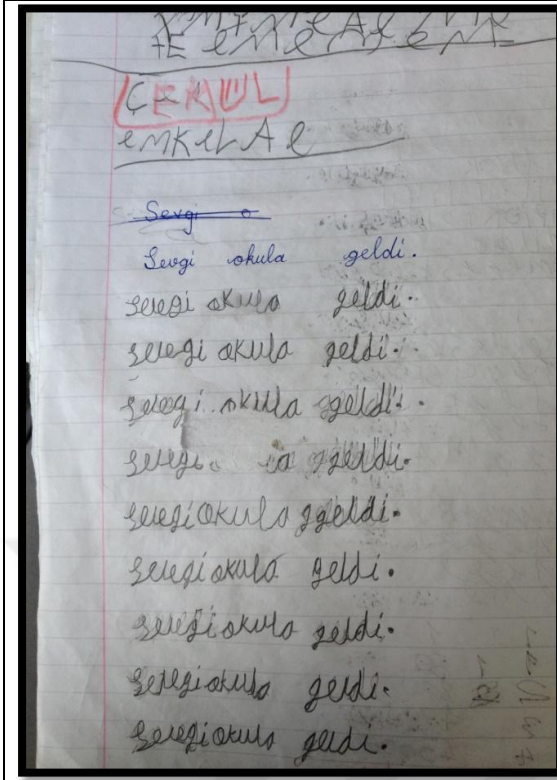 ÇEMUL
emKeLAe
Sevgi o
Sevgi okula geldi.
sevegi okula geldi.
sevegi okula geldi.
sevegi okula ggeldi.
sevegi la ggeldi.
sevegi okula ggeldi.
sevegi okula geldi.
sevegi okula geldi.
sevegi okula geldi.
sevegi okula geldi.